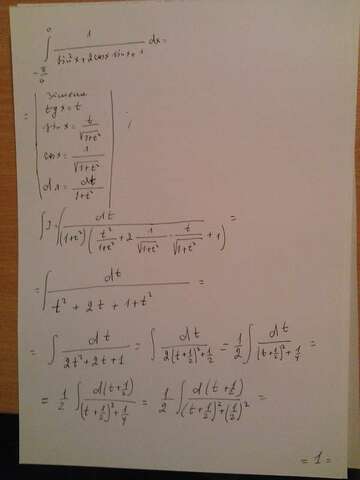 ∫_{-π/6}^{0} 1/(sin²x+2cosx sinx+1) dx=
= | заміна
tgx=t
sinx= t/√(1+t²)
cosx= 1/√(1+t²)
dx= dt/(1+t²) | ;
∫ dt/((1+t²)(t²/(1+t²)+2 1/√(1+t²) · t/√(1+t²) +1)) =
= ∫ dt/(t²+2t+1+t²) =
= ∫ dt/(2t²+2t+1) = ∫ dt/(2(t+1/2)²+1/2) = 1/2 ∫ dt/((t+1/2)²+1/4) =
= 1/2 ∫ d(t+1/2)/((t+1/2)²+1/4) = 1/2 ∫ d(t+1/2)/((t+1/2)²+(1/2)²) =
= 1 =